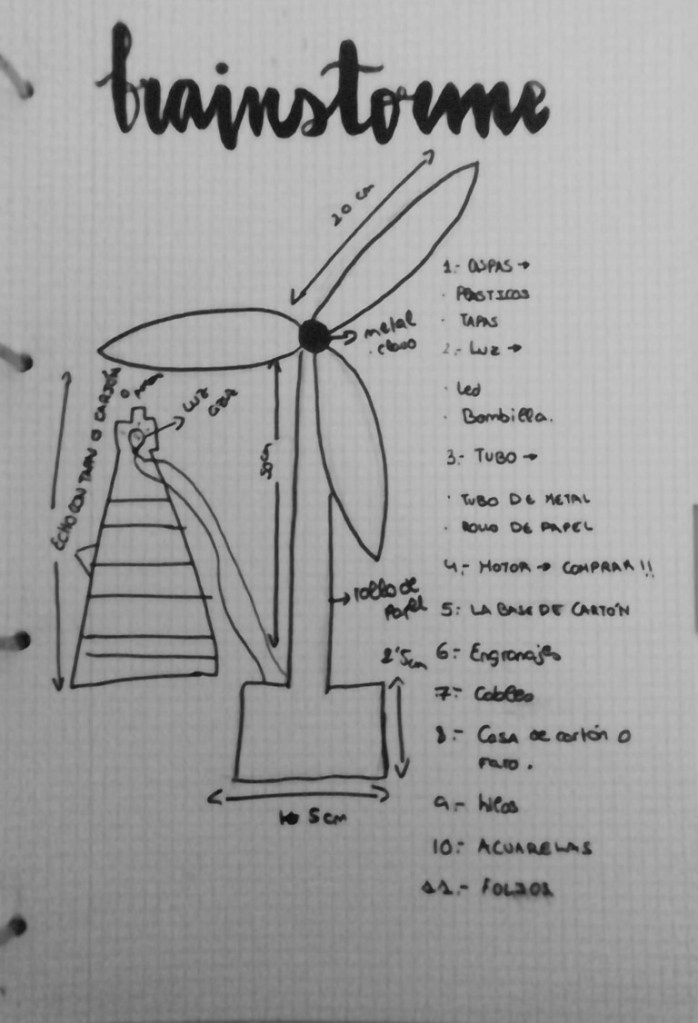 brainstorme
20 cm
metal
clavo
ECHO CON TAPAS O CARTÓN
LUZ
50cm
rollo de
papel
2'5cm
5cm
1.- ASPAS →
· PLÁSTICOS
· TAPAS
2.- LUZ →
· Led
· Bombilla.
3.- TUBO →
· TUBO DE METAL
· ROLLO DE PAPEL
4.- MOTOR → COMPRAR!!
5: LA BASE DE CARTÓN
6:- Engranajes
7:- Cables
8:- Casa de cartón o
faro.
9.- hilos
10:- ACUARELAS
11.- FOLIOS